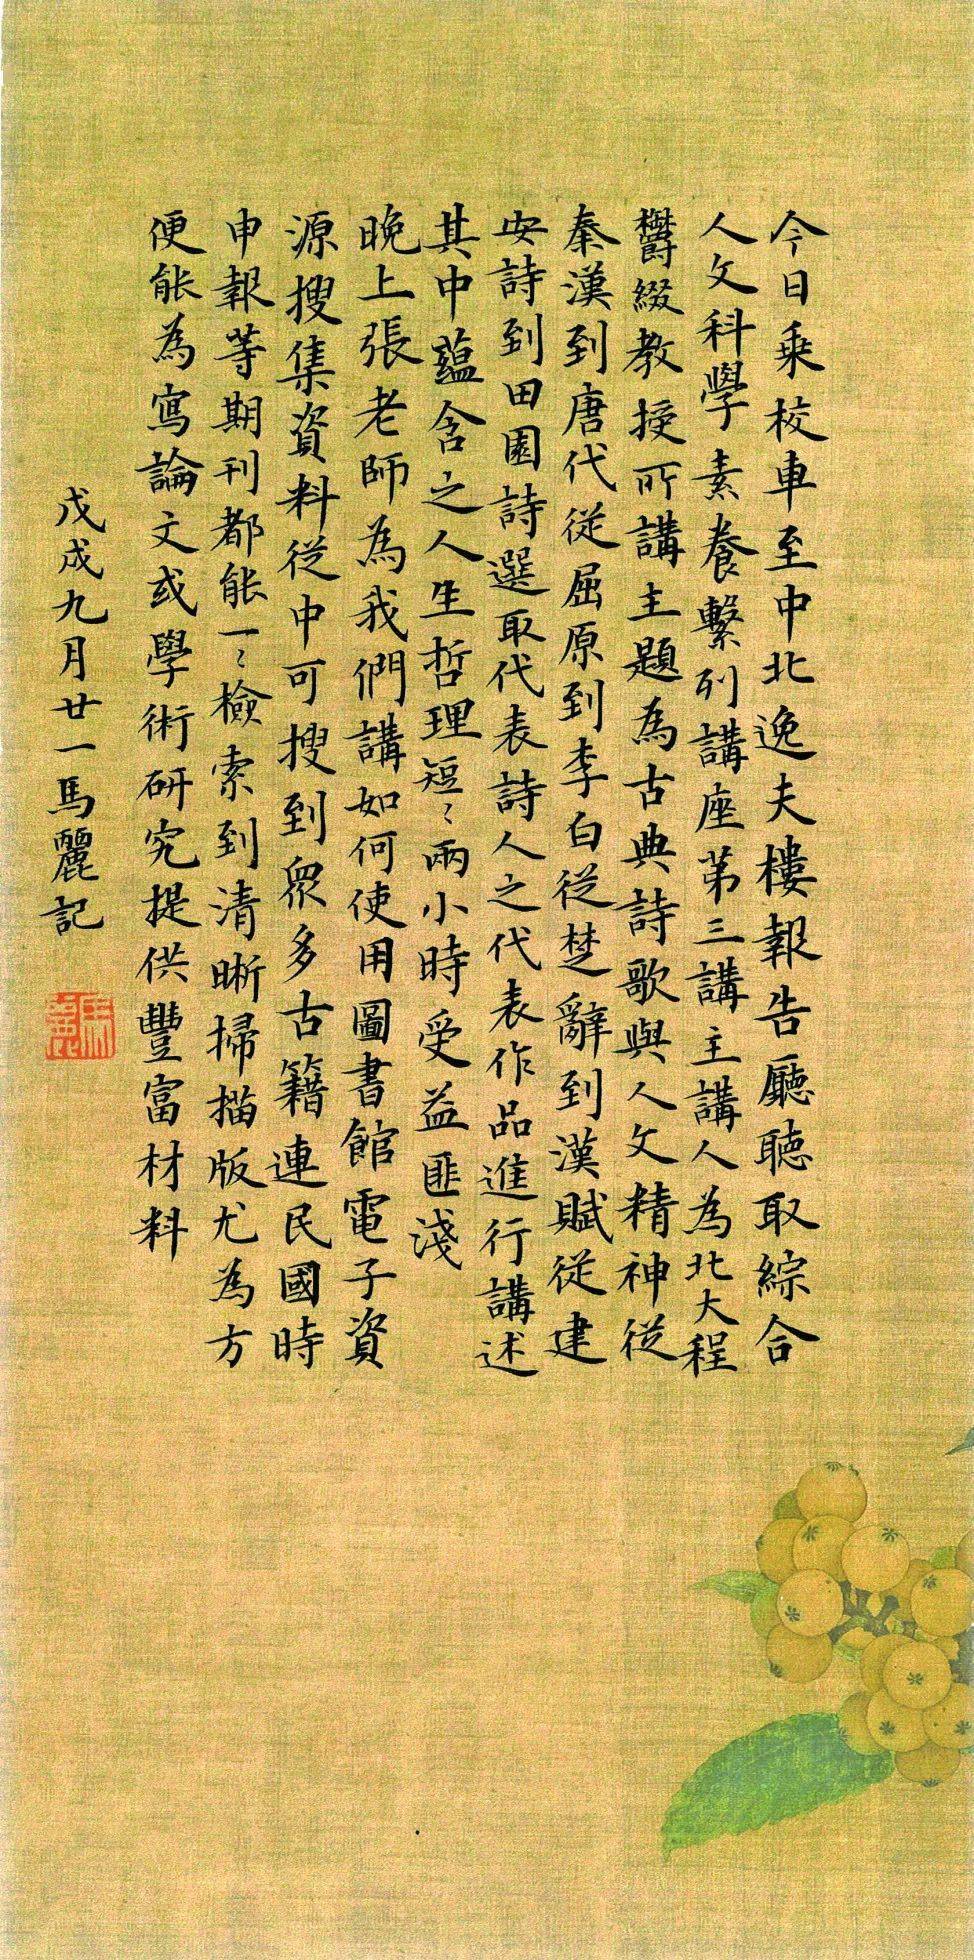 今日乗校車至中北逸夫樓報告廳聽取綜合
人文科學素養繫列講座第三講主講人為北大程
欝綴教授所講主題為古典詩歌與人文精神從
秦漢到唐代從屈原到李白從楚辭到漢賦從建
安詩到田園詩選取代表詩人之代表作品進行講述
其中蘊含之人生哲理短〻兩小時受益匪淺
晚上張老師為我們講如何使用圖書館電子資
源搜集資料從中可搜到眾多古籍連民國時
申報等期刊都能一〻檢索到清晰掃描版尤為方
便能為寫論文或學術研究提供豐富材料
戊戌九月廿一馬麗記
馬麗